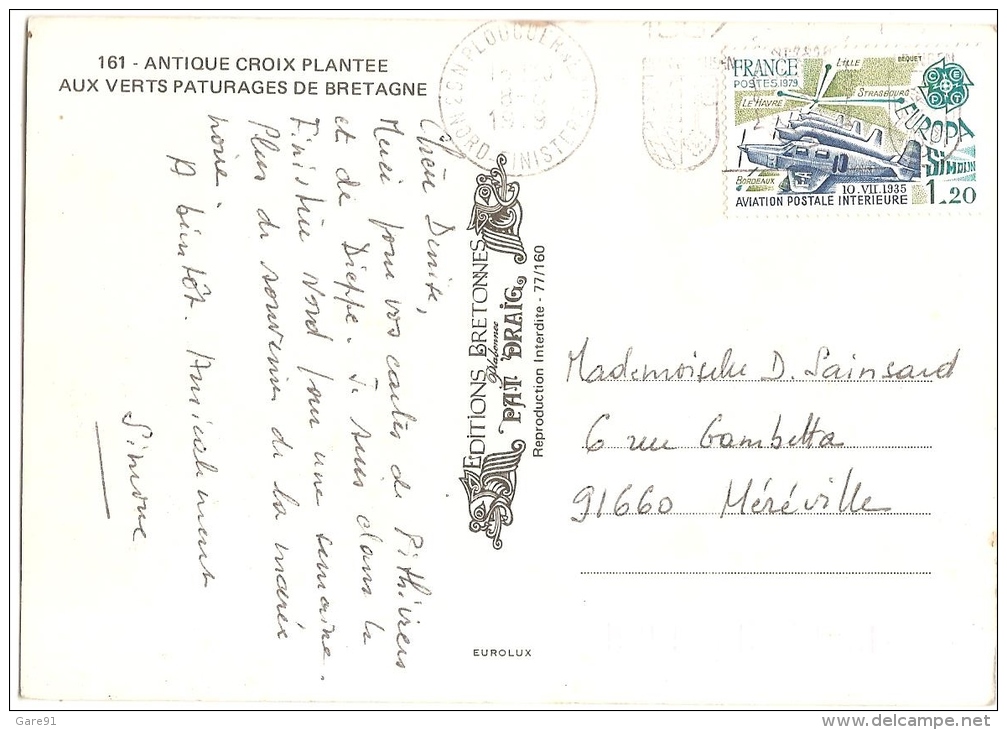 161 - ANTIQUE CROIX PLANTEE
AUX VERTS PATURAGES DE BRETAGNE
Chère Denise,
Merci pour vos cartes de Pithiviers
et de Dieppe. Je suis dans le
Finistère Nord pour une semaine.
Plus de souvenirs de la marée
noire.
A bientôt. Amicalement
Simone
EDITIONS BRETONNES
PAT DRAIG
Reproduction Interdite - 77/160
EUROLUX
NORD-FINISTERE
FRANCE
POSTES 1979
LILLE
BEQUET
LE HAVRE
STRASBOURG
CEPT
EUROPA
SIMOUN
BORDEAUX
10.VII.1935
1,20
AVIATION POSTALE INTERIEURE
Mademoiselle D. Sainsard
6 rue Gambetta
91660 Méréville
Gare91
www.delcampe.net